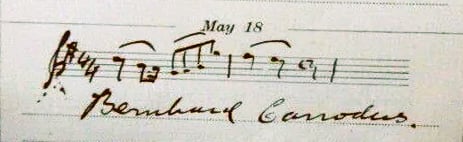 May 18
4/4
Bernhard Carrodus.